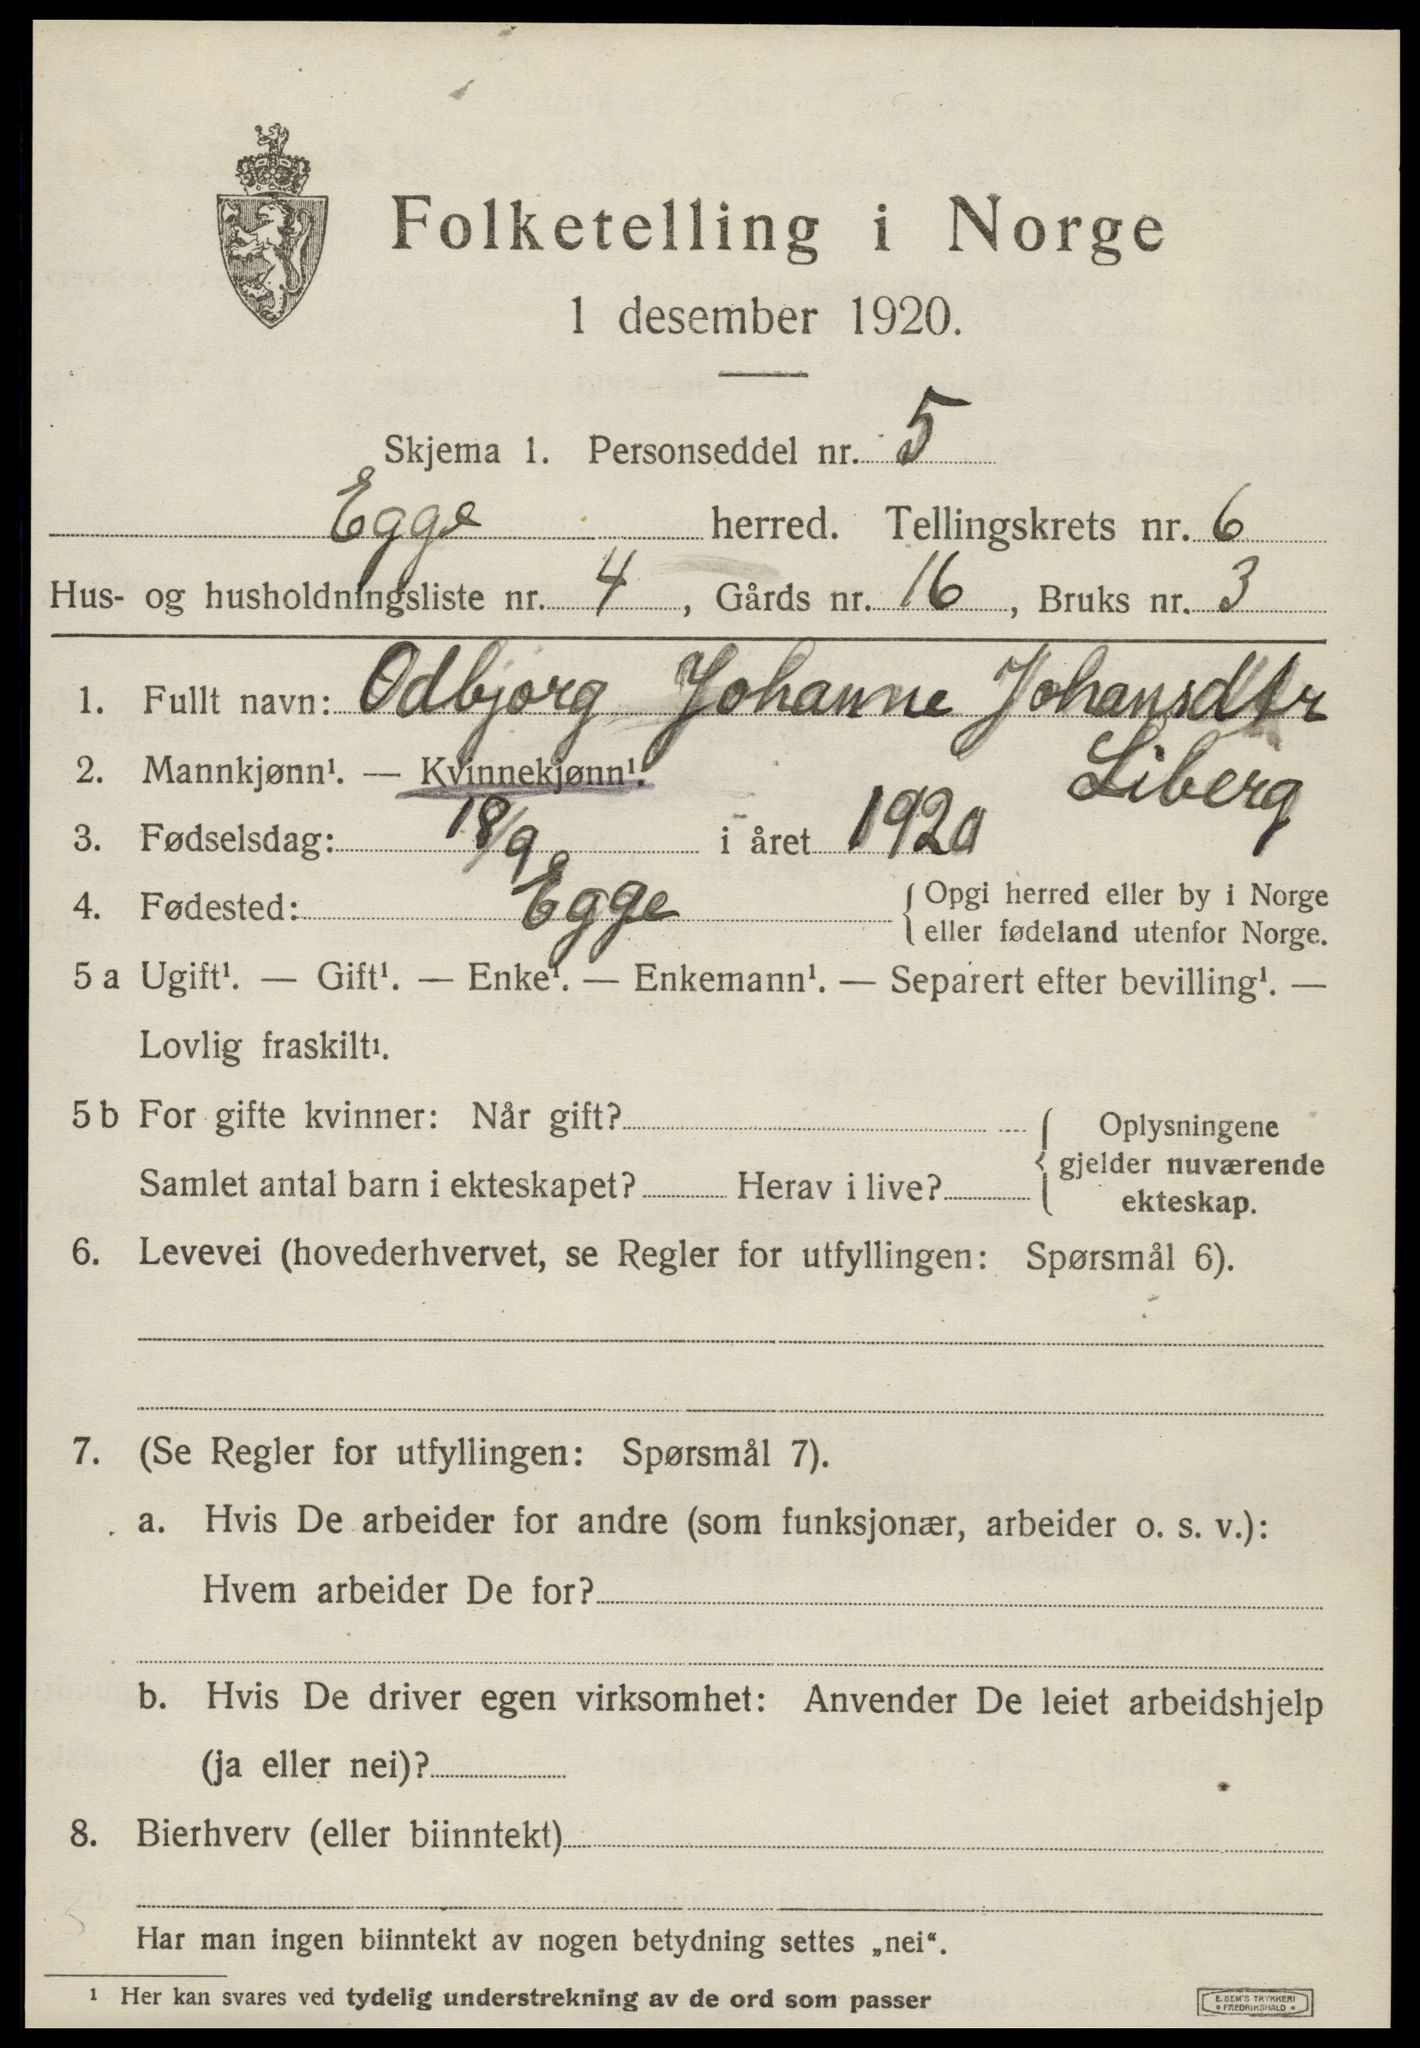 Folketelling i Norge
1 desember 1920.
Skjema 1. Personseddel nr. 5
Egge herred. Tellingskrets nr. 6
Hus- og husholdningsliste nr. 4, Gårds nr. 16, Bruks nr. 3
1. Fullt navn: Odbjorg Johanne Johansdtr
Liberg
2. Mannkjønn¹. — Kvinnekjønn¹.
3. Fødselsdag: 18/9 i året 1920
4. Fødested: Egge { Opgi herred eller by i Norge
eller fødeland utenfor Norge.
5 a Ugift¹. — Gift¹. — Enke¹. — Enkemann¹. — Separert efter bevilling¹. —
Lovlig fraskilt¹.
5 b For gifte kvinner: Når gift? { Oplysningene
gjelder nuværende
Samlet antal barn i ekteskapet? Herav i live?
ekteskap.
6. Levevei (hovederhvervet, se Regler for utfyllingen: Spørsmål 6).
7. (Se Regler for utfyllingen: Spørsmål 7).
a. Hvis De arbeider for andre (som funksjonær, arbeider o. s. v.):
Hvem arbeider De for?
b. Hvis De driver egen virksomhet: Anvender De leiet arbeidshjelp
(ja eller nei)?
8. Bierhverv (eller biinntekt)
Har man ingen biinntekt av nogen betydning settes „nei“.
¹ Her kan svares ved tydelig understrekning av de ord som passer
E. SEM'S TRYKKERI
• FREDRIKSHALD •